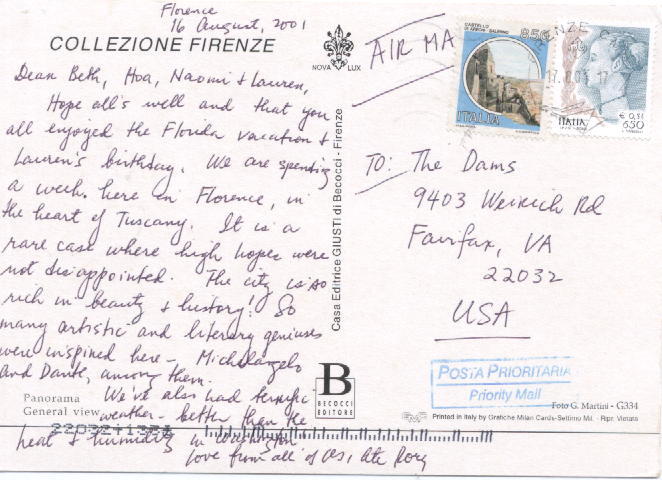 Florence
16 August, 2001
COLLEZIONE FIRENZE
NOVA LUX
AIR MA
Dear Beth, Hoa, Naomi & Lauren,
Hope all's well and that you
all enjoyed the Florida vacation &
Lauren's birthday. We are spending
a week here in Florence, in
the heart of Tuscany. It is a
rare case where high hopes were
not disappointed. The city is so
rich in beauty & history! So
many artistic and literary geniuses
were inspired here - Michelangelo
and Dante, among them.
We've also had terrific
weather - better than the
heat & humidity in Washington
love from all of us,
Panorama
General view
22032+1351
Casa Editrice GIUSTI di Becocci - Firenze
B
BECOCCI
EDITORE
CASTELLO
DI ARECHI - SALERNO
850
ITALIA
RENZE
17.8.01 17
€ 0,34
650
ITALIA
TO: The Dams
9403 Weirich Rd
Fairfax, VA
22032
USA
POSTA PRIORITARIA
Priority Mail
Foto G. Martini - G334
Printed in Italy by Grafiche Milan Cards-Settimo Mil. - Ripr. Vietata